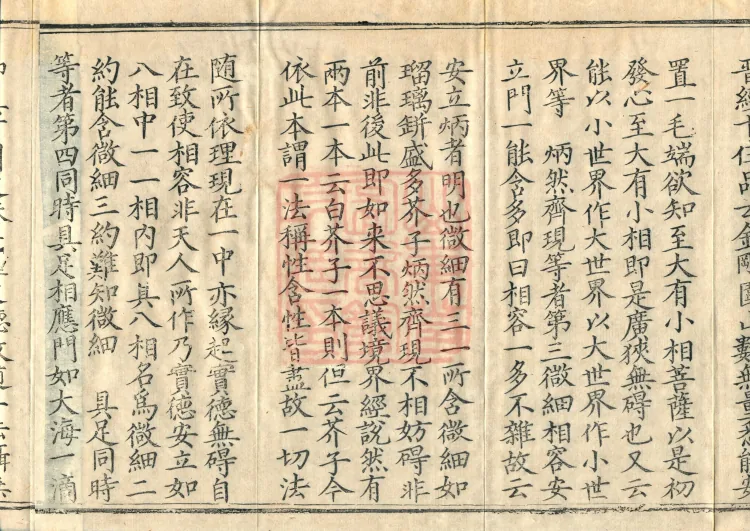 晉經十住品云金剛圍山數無量悉能安
置一毛端欲知至大有小相菩薩以是初
發心至大有小相即是廣狹無碍也又云
能以小世界作大世界以大世界作小世
界等　炳然齊現等者第三微細相容安
立門一能含多即曰相容一多不雜故云
安立炳者明也微細有三一所含微細如
瑠璃缾盛多芥子炳然齊現不相妨碍非
前非後此即如来不思議境界經說然有
兩本一本云白芥子一本則但云芥子今
依此本謂一法稱性含性皆盡故一切法
随所依理現在一中亦緣起實德無碍自
在致使相容非天人所作乃實德安立如
八相中一一相内即具八相名爲微細二
約能含微細三約難知微細　具足同時
等者第四同時具足相應門如大海一滴